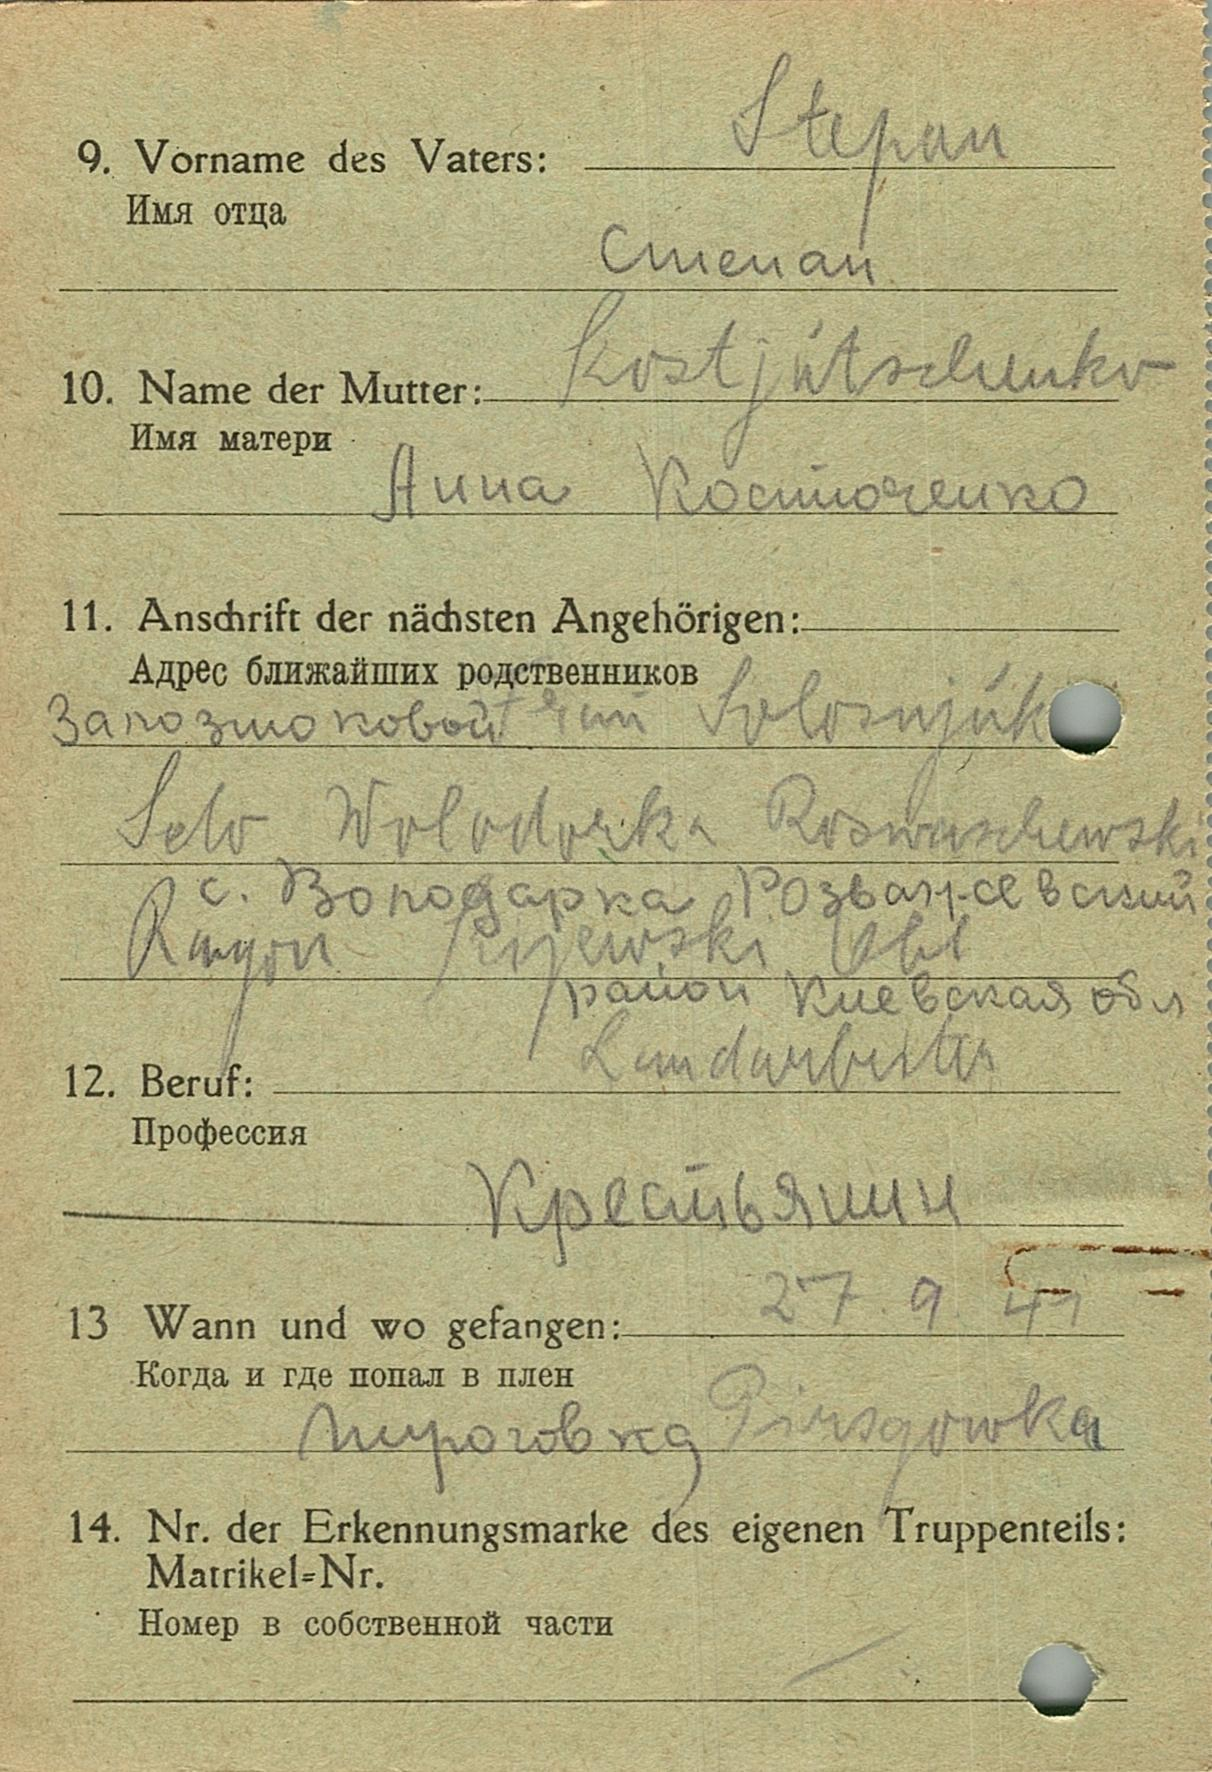 Stepan
9. Vorname des Vaters:
Имя отца
Степан
Kostjutschenko
10. Name der Mutter:
Имя матери
Анна Костюченко
11. Anschrift der nächsten Angehörigen:
Адрес ближайших родственников
Solosnjuk
Selo Wolodorka Roswaschewski
с. Володарка Розважевский
Rayon Kijewski Obl
район Киевская обл
Landarbeiter
12. Beruf:
Профессия
Крестьянин
27. 9. 41
13 Wann und wo gefangen:
Когда и где попал в плен
Пироговка Pirogowka
14. Nr. der Erkennungsmarke des eigenen Truppenteils:
Matrikel=Nr.
Номер в собственной части